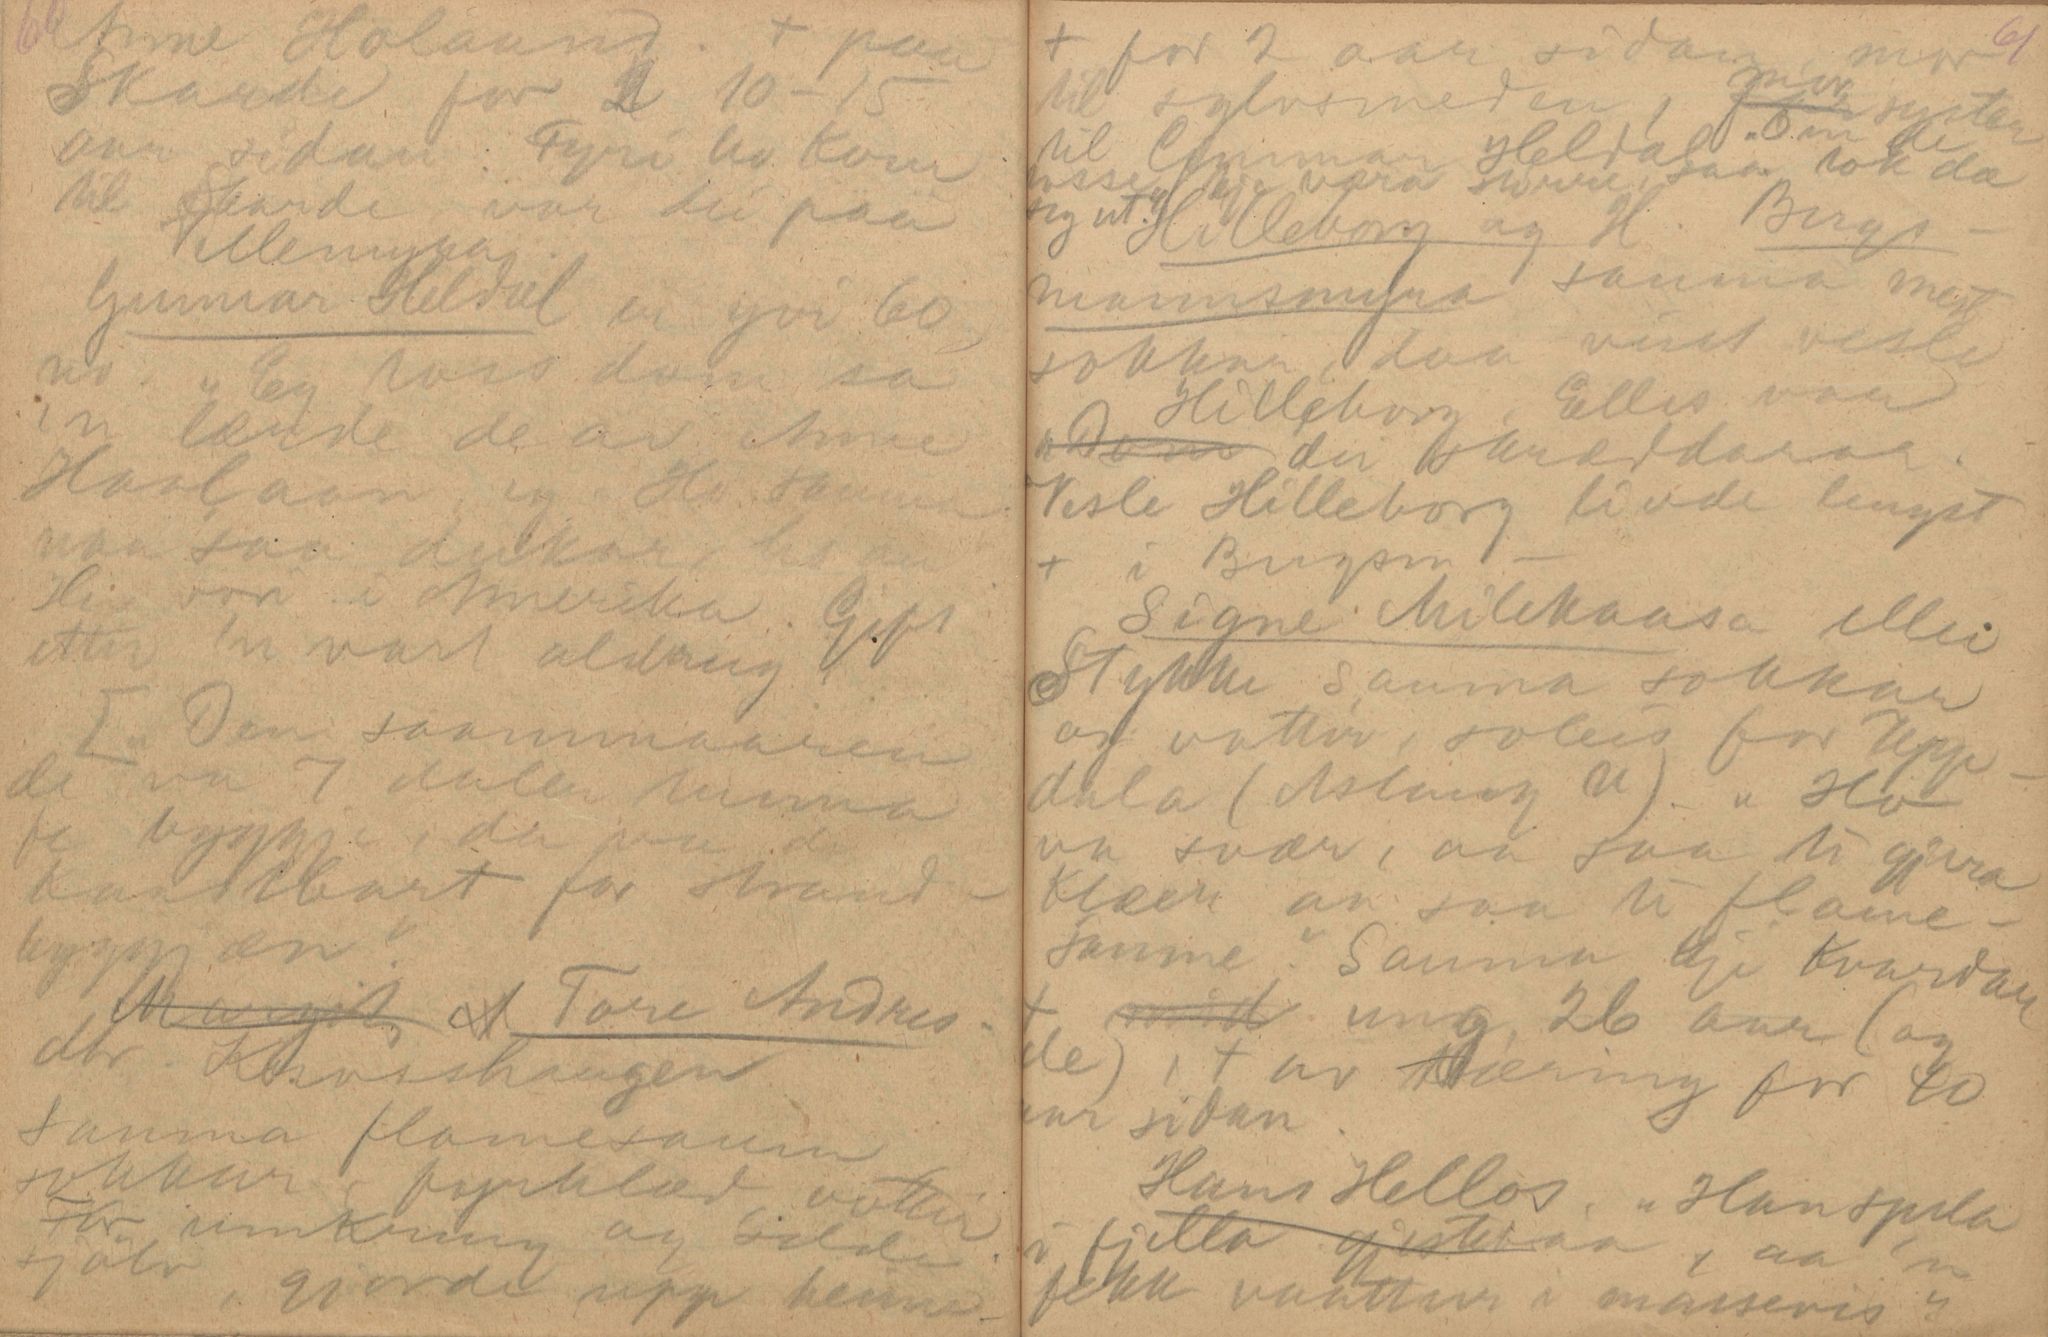 60
Anne Holaann. + paa
Skarde for 10-15
aar sidan. Fyri ho kom
til Skarde var dei paa
Memyra.
Gunnar Heldal er yvi 60
no. "Eg tors dom sa
'n lærde de av Anne
Haalaan, eg. Ho sauma
naa saa dukar, ho au
Ho var i Amerika. Gift
etter 'n vart aldrug
[ "Den saammaaren
de va 7 daler tunna
fe byggje, da va de
kaastbart for strand-
byggjæn."
Margit Tore Andres-
dtr. Krosshaugen
sauma flamesaum
sokkar, fyrklæd votter
For umkring og selde
sjølv, gjorde upp heime
61
+ for 2 aar sidan, mor
til sylvsmeden, mor syster
til Gunnar Heldal. "Om de
kje vera saa tok da
seg ut."
Hilleborg og H. Bergs-
mannsmyra sauma mest
sokkar, daa visst vesle
Hilleborg. Elles var
"Dom dei skræddarar.
Vesle Hilleborg livde lengst
+ i Bergsm -
Signe Milekaasa eller
Stykke sauma sokkar
og votter, soleis for Upp-
dala (Aslaug U). "Ho
va svær, aa saa ti gjera
klæer aa saa ti flame-
saume". Sauma kje kvardar
+ ung, 26 aar (og
de), + av tæring for 40
aar sidan.
Hans Hellos. "Han spela
i fjella gjestraa, aa 'n
fekk vaatter i massevis"